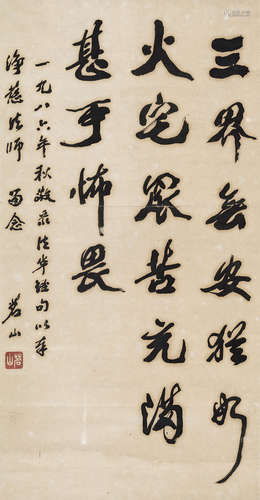 三界無安猶如
火宅眾苦充滿
甚可怖畏
一九八六年秋敬录法华经句以奉
净慧法师 留念
茗山
茗山